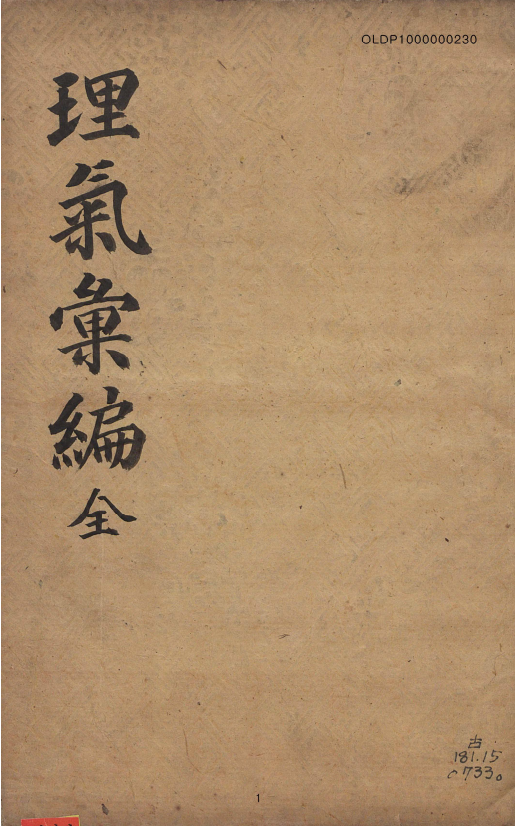 OLDP1000000230
理氣彙編全
古
181.15
○733○
1